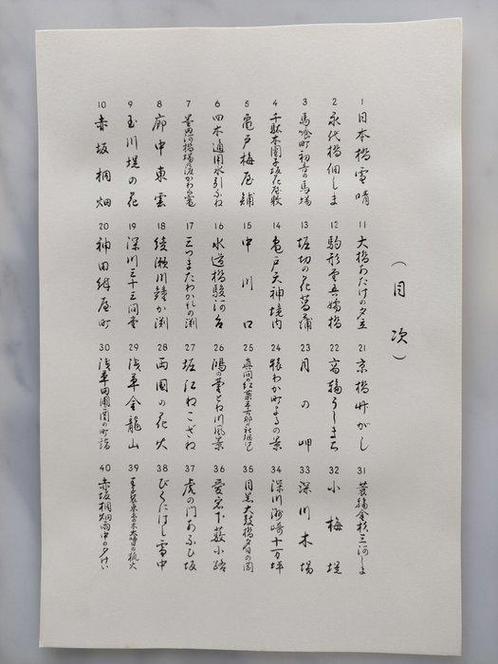 （目次）
1 日本橋雪晴
2 永代橋佃しま
3 馬喰町初音の馬場
4 千駄木團子坂花屋敷
5 亀戸梅屋舖
6 四木通用水引ふね
7 墨田河橋場の渡かわら竈
8 廓中東雲
9 玉川堤の花
10 赤坂桐畑
11 大橋あたけの夕立
12 駒形堂吾嬬橋
13 堀切の花菖蒲
14 亀戸天神境内
15 中川口
16 水道橋駿河台
17 三つまたわかれの渕
18 綾瀬川鐘か渕
19 深川三十三間堂
20 神田紺屋町
21 京橋竹がし
22 高輪うしまち
23 月の岬
24 猿わか町よるの景
25 真間の紅葉手古那の社継はし
26 鴻の臺とね川風景
27 堀江ねこざね
28 両國の花火
29 浅草金龍山
30 浅草田圃酉の町詣
31 蓑輪金杉三河しま
32 小梅堤
33 深川木場
34 深川洲崎十万坪
35 目黒太鼓橋夕日の岡
36 愛宕下薮小路
37 虎の門あふひ坂
38 びくにはし雪中
39 王子装束ゑの木大晦日の狐火
40 赤坂桐畑雨中の夕けい